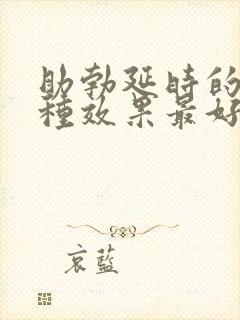 助勃延時的
種效果最好
哀藍